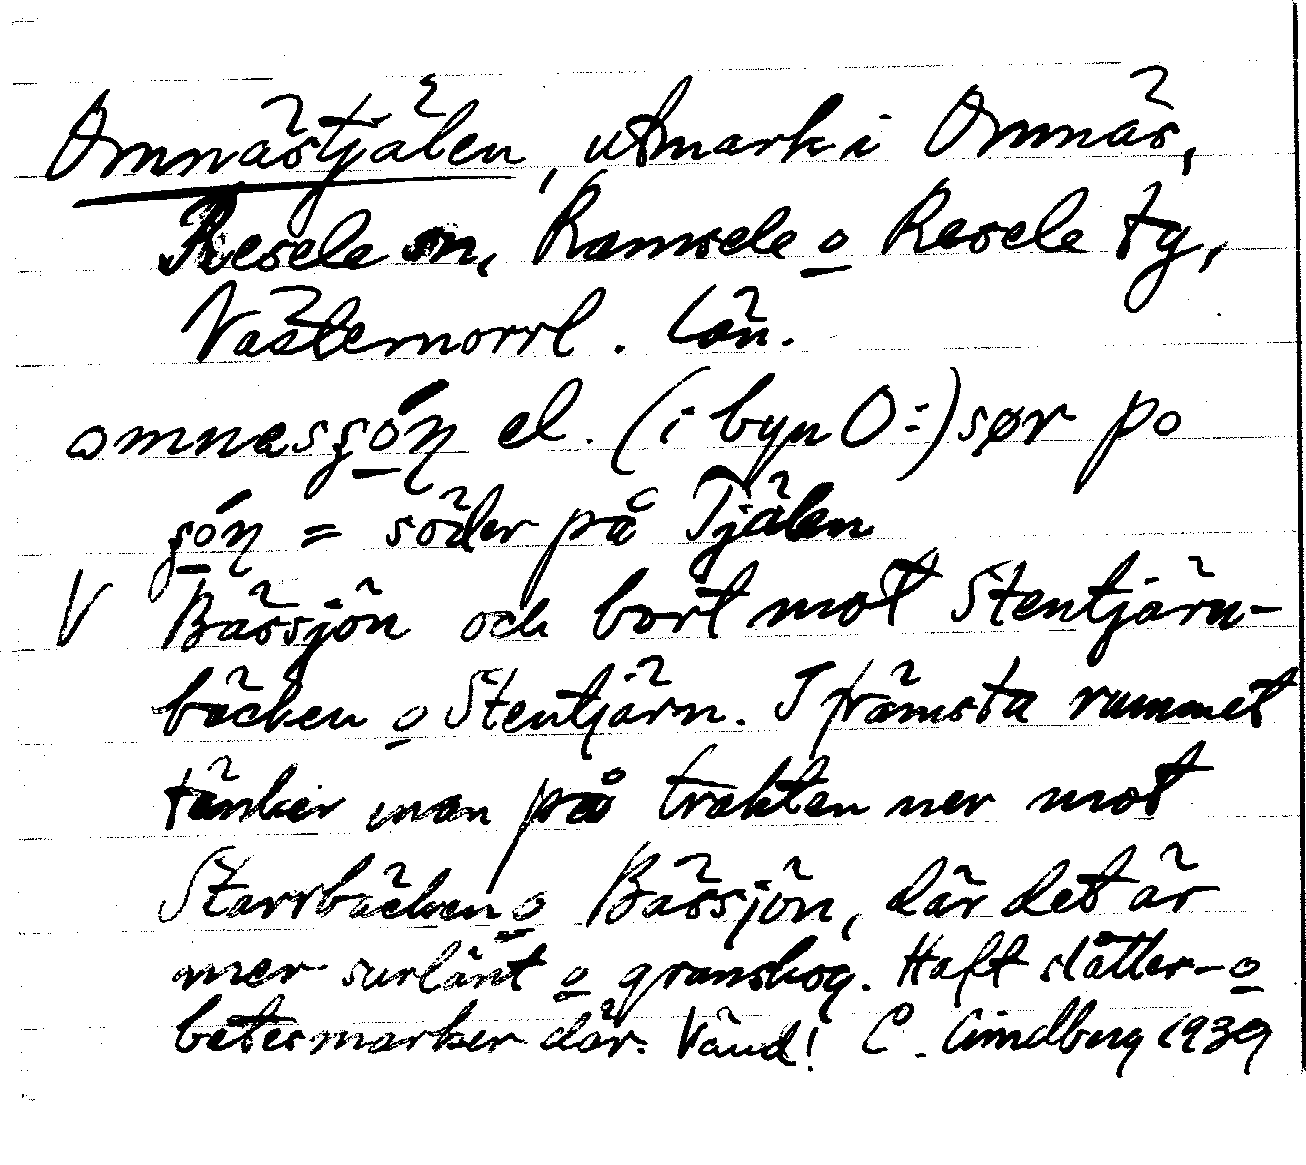 Omnästjälen, utmark i Omnäs,
Resele sn, Ramsele o Resele tg,
Västernorrl. län.
omnesʂó̠ŋ el. (i byn O:) sør po
ʂó̠ŋ = söder på Tjälen
V Bässjön och bort mot Stentjärn-
bäcken o Stentjärn. I främsta rummet
tänker man på trakten ner mot
Starrbäcken o Bässjön, där det är
mer surlänt o granskog. Haft slåtter- o
betesmarker där. Vänd! C. Lindberg 1939